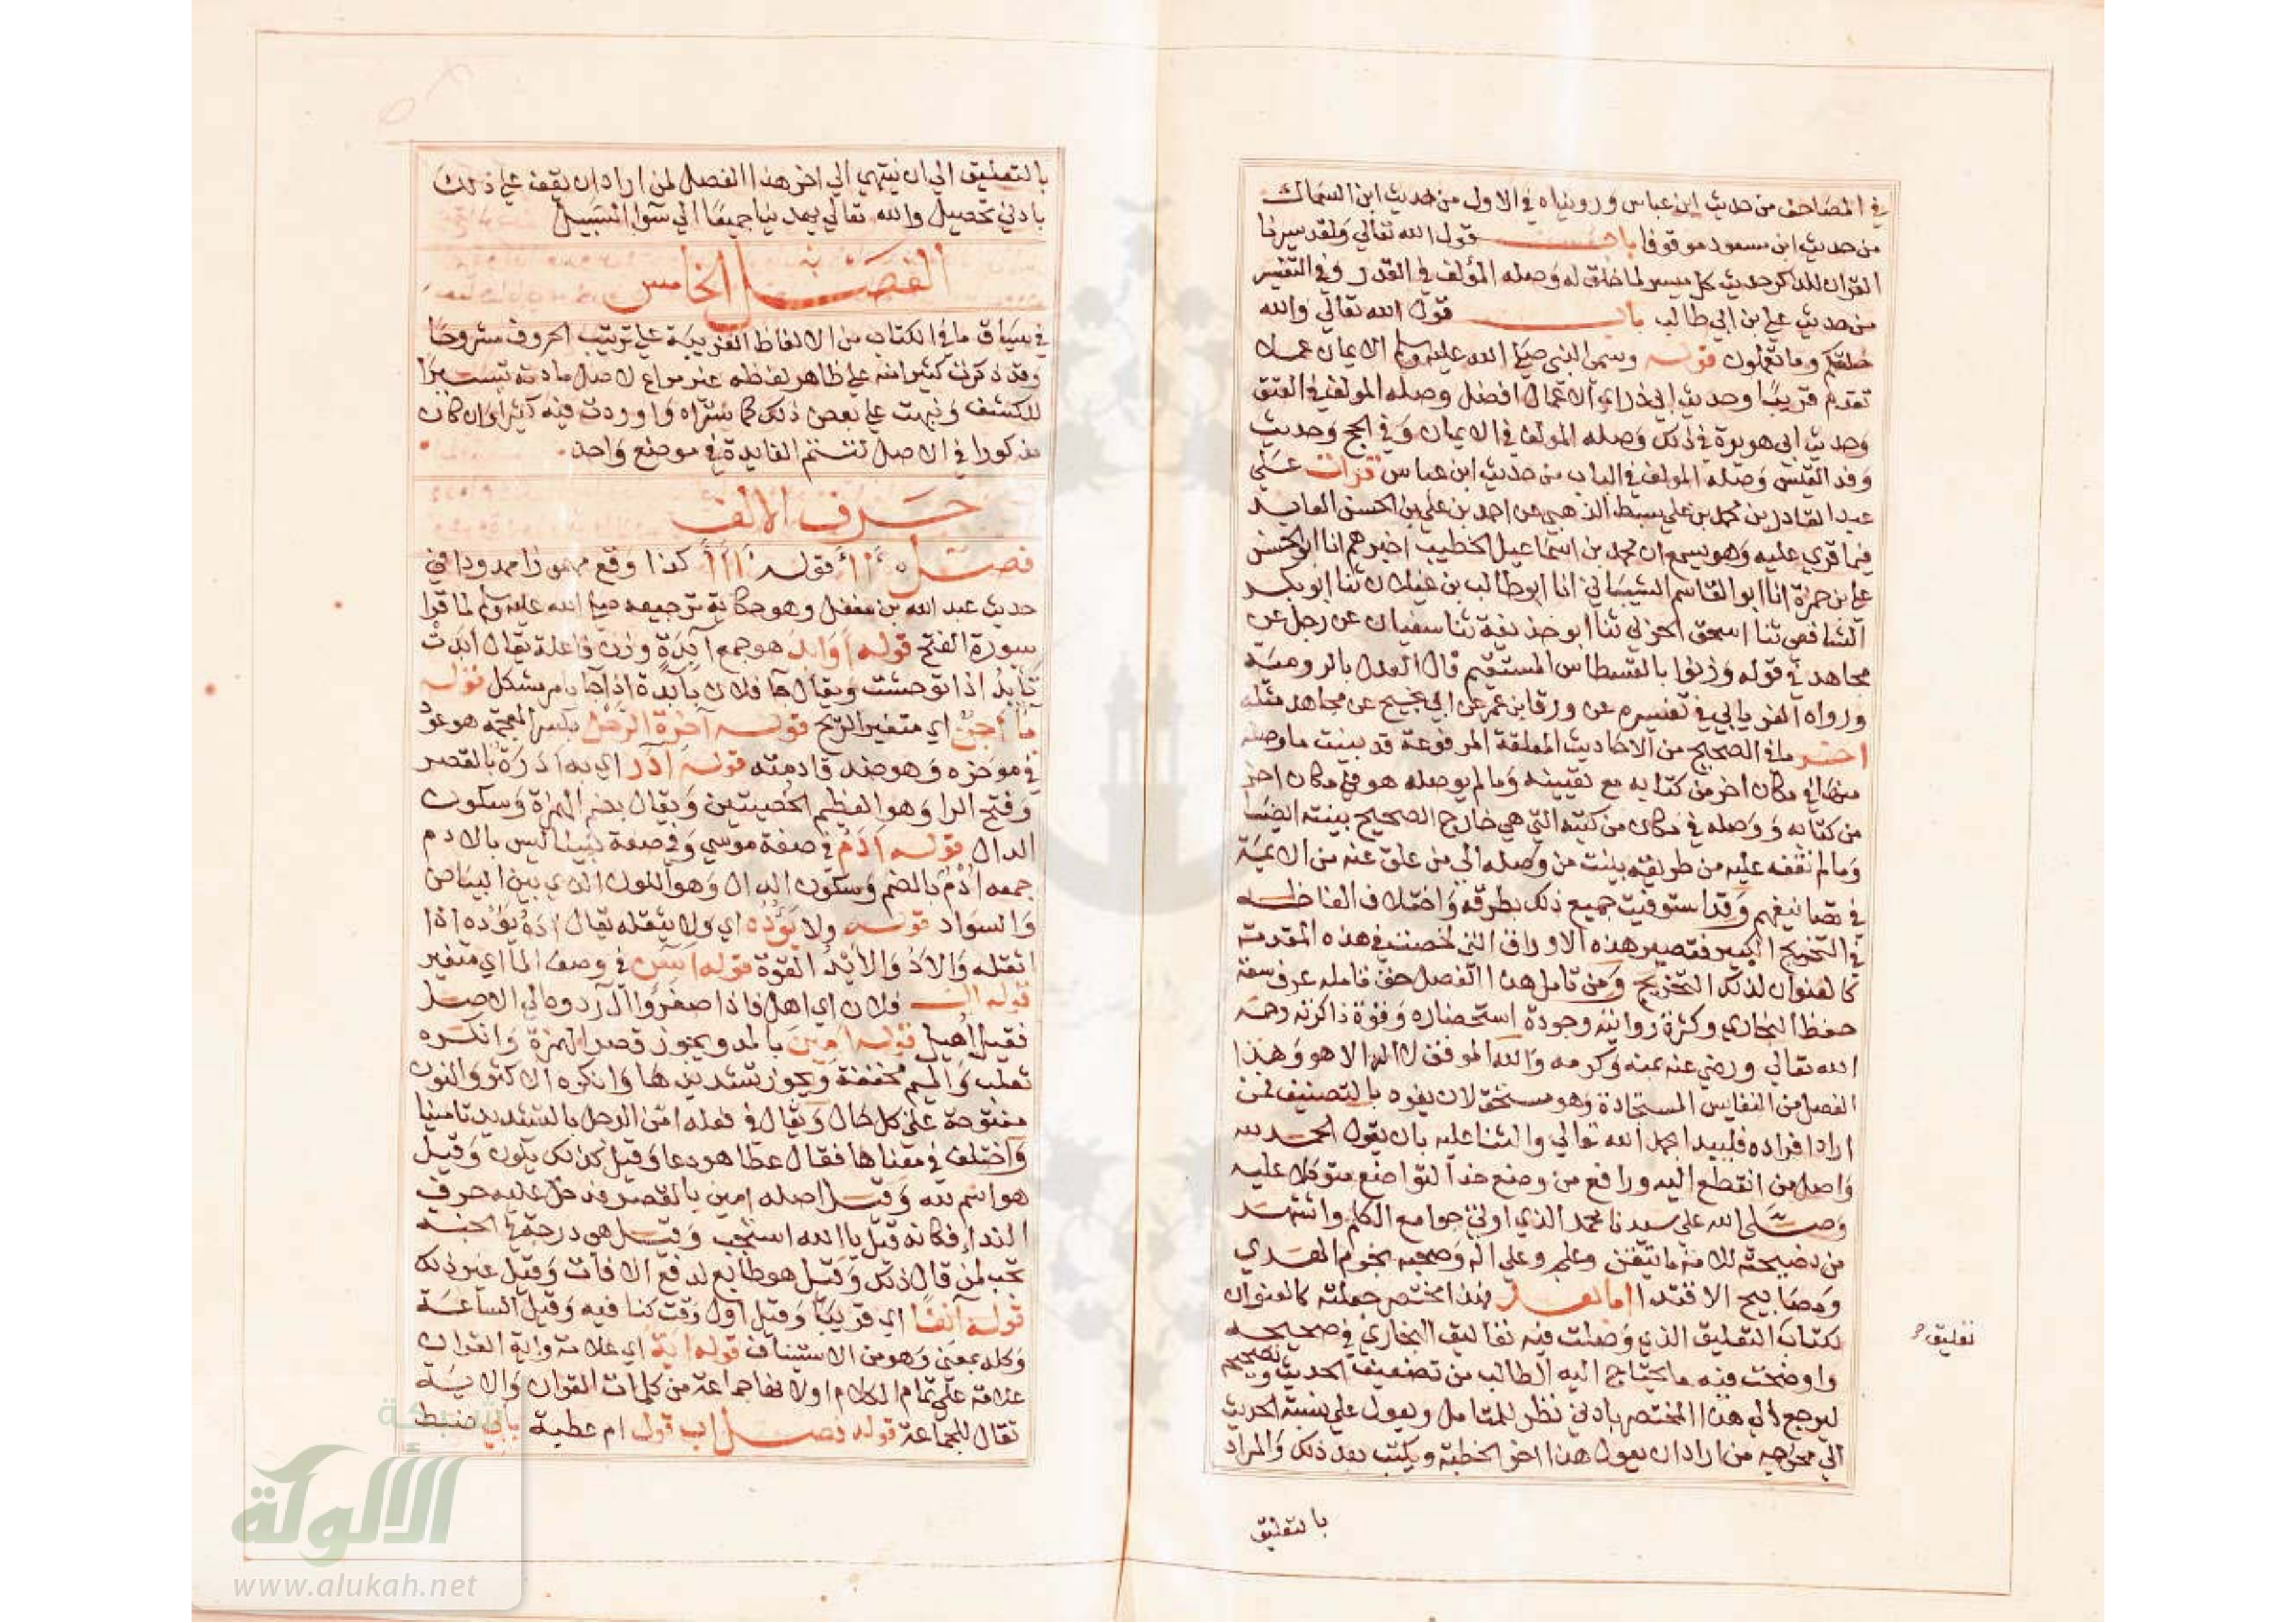 في المصاحف من حديث ابن عباس ورويناه في الاول من حديث ابن السماك
من حديث ابن مسعود موقوفا باب قول الله تعالي ولقد يسرنا
القران للذكر حديث كل ميسر لما خلق له وصله المؤلف في القدر وفي التفسير
من حديث علي بن ابي طالب باب قول الله تعالي والله
خلقكم وما تعملون قوله وسمى النبي صلي الله عليه وسلم الايمان عملا
تقدم قريبا وحديث ابي ذر اي الاعمال افضل وصله المولف في العتق
وحديث ابي هريرة في ذلك وصله المولف في الايمان وفي الحج وحديث
وفد القيس وصله المولف في الباب من حديث ابن عباس قرات علي
عبد القادر بن محمد بن علي سبط الذهبي عن احمد بن علي بن الحسن العابد
فيما قري عليه وهو يسمع ان محمد بن اسماعيل الخطيب اخبرهم انا ابو الحسن
علي بن حمزة انا ابو القاسم الشيباني انا ابو طالب بن غيلان ثنا ابو بكر
الشافعي ثنا اسحق الحربي ثنا ابو حذيفة ثنا سفيان عن رجل عن
مجاهد في قوله وزنوا بالقسطاس المستقيم قال العدل بالرومية
ورواه الفريابي في تفسيره عن ورقا بن عمر عن ابي نجيح عن مجاهد مثله
اخر ما في الصحيح من الاحاديث المعلقة المرفوعة قد بينت ما وصله
منها في مكان اخر من كتابه مع تعيينه وما لم يوصله هو في مكان اخر
من كتابه ووصله في مكان من كتبه التي هي خارج الصحيح بينته ايضا
وما لم نقف عليه من طريقه بينت من وصله الي من علق عنه من الايمة
في تصانيفهم وقد استوفيت جميع ذلك بطرقه واختلاف الفاظه
في التخريج الكبير فتصير هذه الاوراق التي لخصت في هذه المقدمة
كالعنوان لذلك التخريج ومن تامل هذا الفصل حق تامله عرف سعة
حفظ البخاري وكثرة روايته وجودة استحضاره وقوة ذاكرته رحمه
الله تعالي ورضي عنه بمنه وكرمه والله الموفق لا اله الا هو وهذا
الفصل من النفايس المستجادة وهو مستحق لان يفرد بالتصنيف لمن
اراد افراده فليبدا بحمد الله تعالي والثنا عليه بان يقول الحمد لله
واصل من انقطع اليه ورافع من وضع خدا لتواضع متوكلا عليه
وصلى الله على سيدنا محمد الذي اوتي جوامع الكلم واشتهر
من نصيحته للامة ما تيقن وعلم وعلى اله وصحبه نجوم الهدي
ومصابيح الاقتدا اما بعد فهذا مختصر جعلته كالعنوان
لكتاب التعليق الذي وصلت فيه تعاليق البخاري في صحيحه
واوضحت فيه ما يحتاج اليه الطالب من تضعيف الحديث وتصحيحه
ليرجع الي هذا المختصر بادني نظر للمتامل ويعول على نسبة الحديث
الي مخرجيه من اراد ان يعول هذا اخر الخطبة ويكتب بعد ذلك والمراد
تغليق
بالتعليق
بالتعليق الي ان ينتهي الي اخر هذا الفصل لمن اراد ان يقف علي ذلك
بادني تحصيل والله تعالي يهدينا جميعا الي سوا السبيل
الفصل الخامس
في سياق ما في الكتاب من الالفاظ الغريبة علي ترتيب الحروف مشروحا
وقد ذكرت كثيرا منه علي ظاهر لفظه غير مراع لاصل مادته تيسيرا
للكشف ونبهت علي بعض ذلك كما ستراه واوردت فيه كثيرا وان كان
مذكورا في الاصل لتتم الفايدة في موضع واحد
حرف الالف
فصل ا ا قوله ااا كذا وقع مهموزا ممدودا في
حديث عبد الله بن مغفل وهو حكاية ترجيعه صلي الله عليه وسلم لما قرا
سورة الفتح قوله اوابد هو جمع آبدة وزن فاعلة يقال ابدت
تأبد اذا توحشت ويقال جا فلان بآبدة اذا جا بامر مشكل قوله
ما آجن اي متغير الريح قوله آخرة الرحل بكسر المعجمة هو عود
في موخره وهو ضد قادمته قوله آدر اي به ادرة بالقصر
وفتح الرا وهو العظيم الخصيتين ويقال بضم الهمزة وسكون
الدال قوله آدم في صفة موسي وفي صفة نبينا ليس بالادم
جمعه أدم بالضم وسكون الدال وهو اللون الذي بين البياض
والسواد قوله ولا يؤده اي ولا يثقله يقال اده يؤده اذا
اثقله والاد والايد القوة قوله آسن في وصف الما اي متغير
قوله ال فلان اي اهل فاذا صغروا آل ردوه الي الاصل
فقيل اهيل قوله امين بالمد ويجوز قصر الهمزة وانكره
ثعلب والميم مخففة ويجوز تشديدها وانكره الاكثر والنون
مفتوحة على كل حال ويقال في فعله امن الرجل بالتشديد تامينا
واختلف في معناها فقال عطا هو دعا وقيل كذلك يكون وقيل
هو اسم لله وقيل اصله امين بالقصر فدخل عليه حرف
الندا فكانه قيل يا الله استجب وقيل هي درجة في الجنة
تجب لمن قال ذلك وقيل هو طابع لدفع الافات وقيل غير ذلك
قوله آنفا اي قريبا وقيل اول وقت كنا فيه وقيل الساعة
وكله بمعنى وهو من الاستيناف قوله اية اي علامة واية القران
علامة على تمام الكلام او لانها جماعة من كلمات القران والاية
تقال للجماعة قوله فصل اب قول ام عطية بابي ضبط
شبكة
الألوكة
www.alukah.net